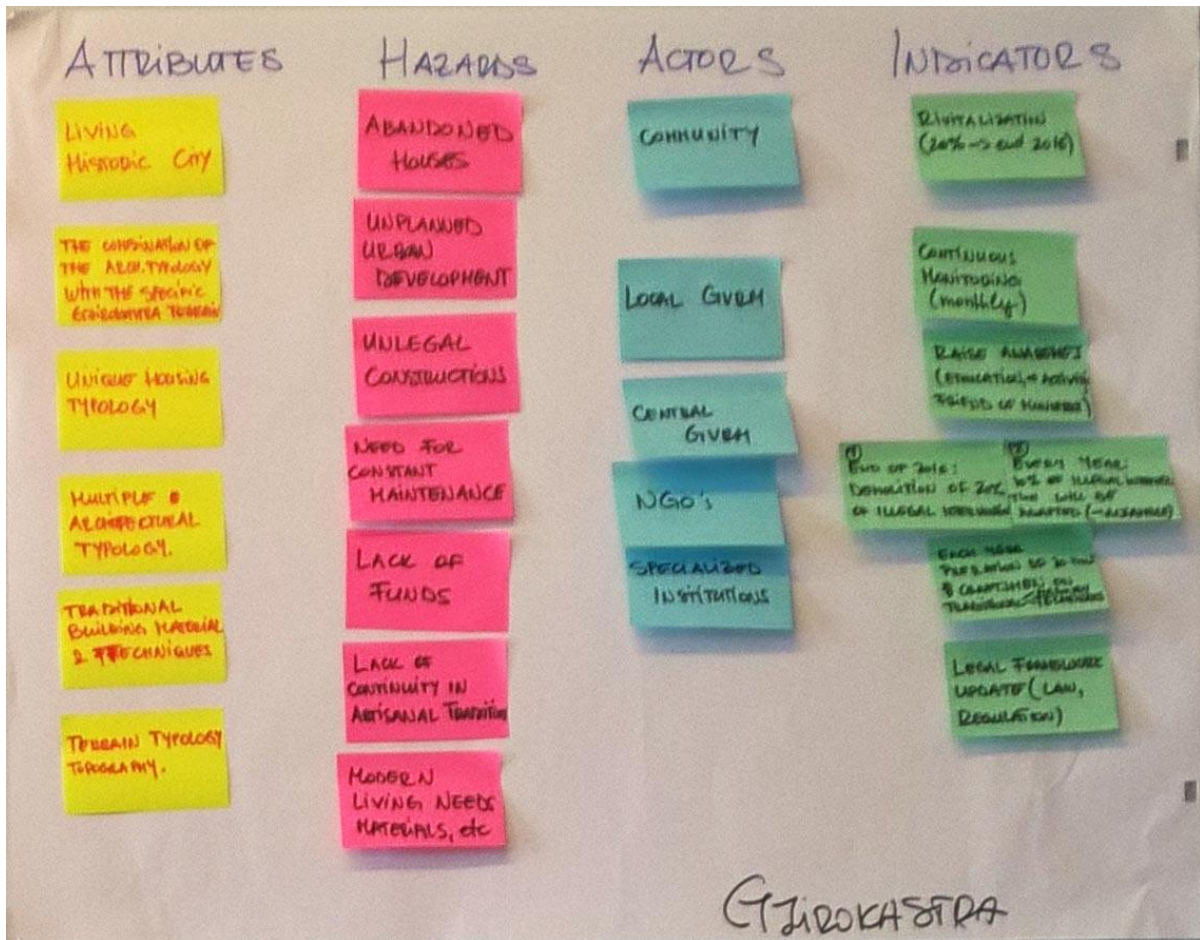 ATTRIBUTES
LIVING
HISTORIC CITY
THE COMBINATION OF
THE ARCH. TYPOLOGY
WITH THE SPECIFIC
TERRAIN
UNIQUE HOUSING
TYPOLOGY
MULTIPLE
ARCHITECTURAL
TYPOLOGY.
TRADITIONAL
BUILDING MATERIAL
& TECHNIQUES
TERRAIN TYPOLOGY
TOPOGRAPHY.
HAZARDS
ABANDONED
HOUSES
UNPLANNED
URBAN
DEVELOPMENT
UNLEGAL
CONSTRUCTIONS
NEED FOR
CONSTANT
MAINTENANCE
LACK OF
FUNDS
LACK OF
CONTINUITY IN
ARTISANAL TRADITION
MODERN
LIVING NEEDS
MATERIALS, etc
ACTORS
COMMUNITY
LOCAL GVRM
CENTRAL
GVRM
NGO's
SPECIALIZED
INSTITUTIONS
INDICATORS
RIVITALIZATION
(20% -> end 2016)
CONTINUOUS
MONITORING
(monthly)
RAISE
(EDUCATION,
FRIEND OF
①
END OF 2016:
DEMOLITION OF 20%
OF ILLEGAL
②
EVERY YEAR:
10% OF ILLEGAL
WILL BE
ADAPTED
EACH YEAR
OF 20
& CRAFTSMEN ON
TRADITIONAL TECHNIQUES
LEGAL FRAMEWORK
UPDATE (LAW,
REGULATION)
GJIROKASTRA